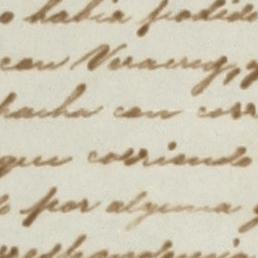 o habia podido
con Veracruz, y
hacha con corr
que corriendo
por alguna